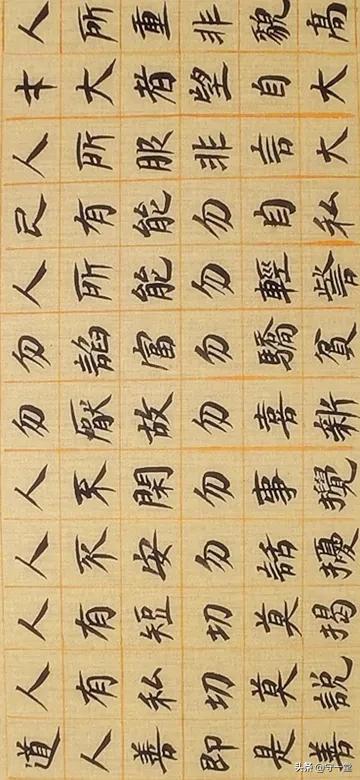 人所重非貌高
才大者望自大
人所服非言大
己有能勿自私
人所能勿輕訾
勿諂富勿驕貧
勿厭故勿喜新
人不閑勿事攪
人不安勿話擾
人有短切莫揭
人有私切莫說
道人善即是善
头条@守一堂